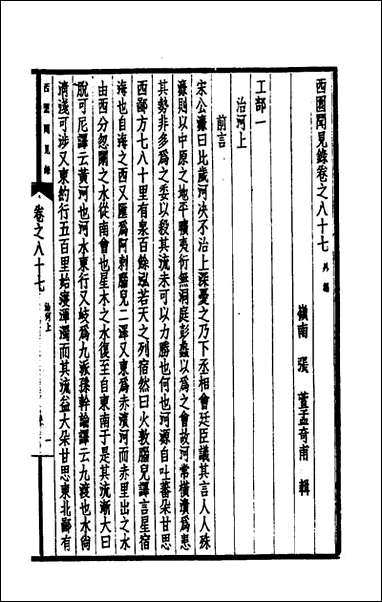 西園聞見錄卷之八十七 外編
嶺南 張 萱孟奇甫 輯
工部一
治河上
前言
宋公濂曰比歲河决不治上深憂之乃下丞相會廷臣議其言人人殊
濂則以中原之地平曠夷衍無洞庭彭蠡以爲之會故河常橫潰爲患
其勢非多爲之委以殺其流未可以力勝也何也河源自吐蕃朵甘思
西鄙方七八十里有泉百餘泓若天之列宿然曰火敦腦兒譯言星宿
海也自海之西又匯爲阿剌腦兒二澤又東爲赤濱河而赤里出之水
由西分忽闌之水從南會也里朮之水復至自東南于是其流漸大曰
脫可尼譯云黃河也河水東行又岐爲九派孫幹論譯云九渡也水尙
淸淺可涉又東約行五百里始寖渾濁而其流益大朵甘思東北鄙有
西園聞見錄
卷之八十七
治河上
一